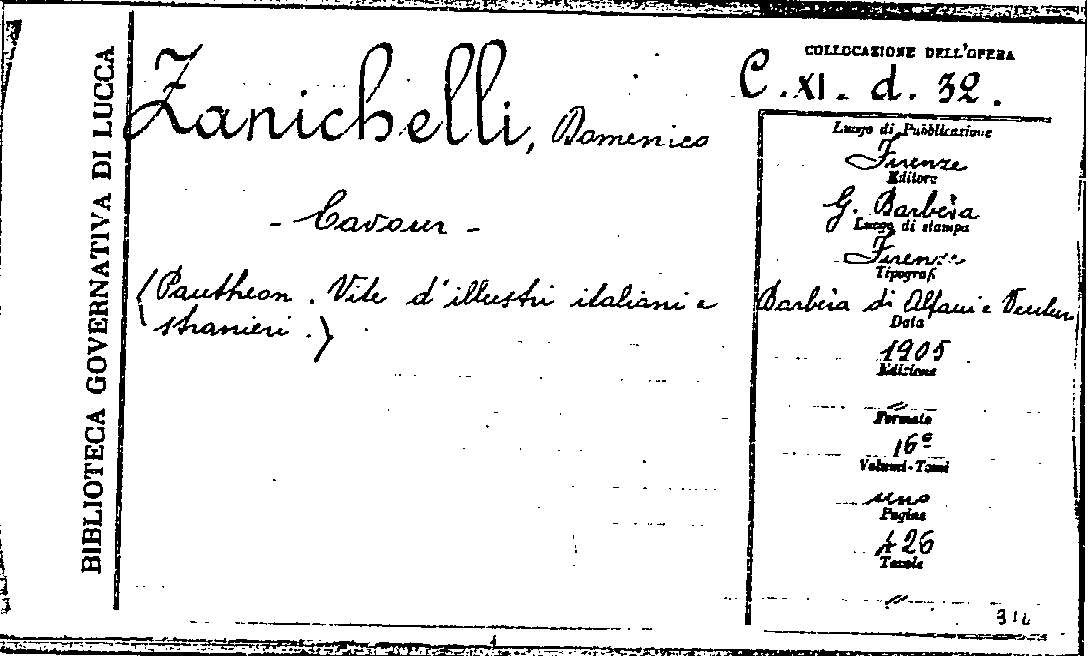 BIBLIOTECA GOVERNATIVA DI LUCCA
Zanichelli, Domenico
- Cavour -
(Pantheon. Vite d'illustri italiani e
stranieri.)
COLLOCAZIONE DELL'OPERA
C. XI. d. 32.
Luogo di Pubblicazione
Firenze
Editore
G. Barbèra
Luogo di stampa
Firenze
Tipograf.
Barbèra di Alfani e
Data
1905
Edizione
"
Formato
16º
Volumi-Tomi
uno
Pagine
426
Tavole
"